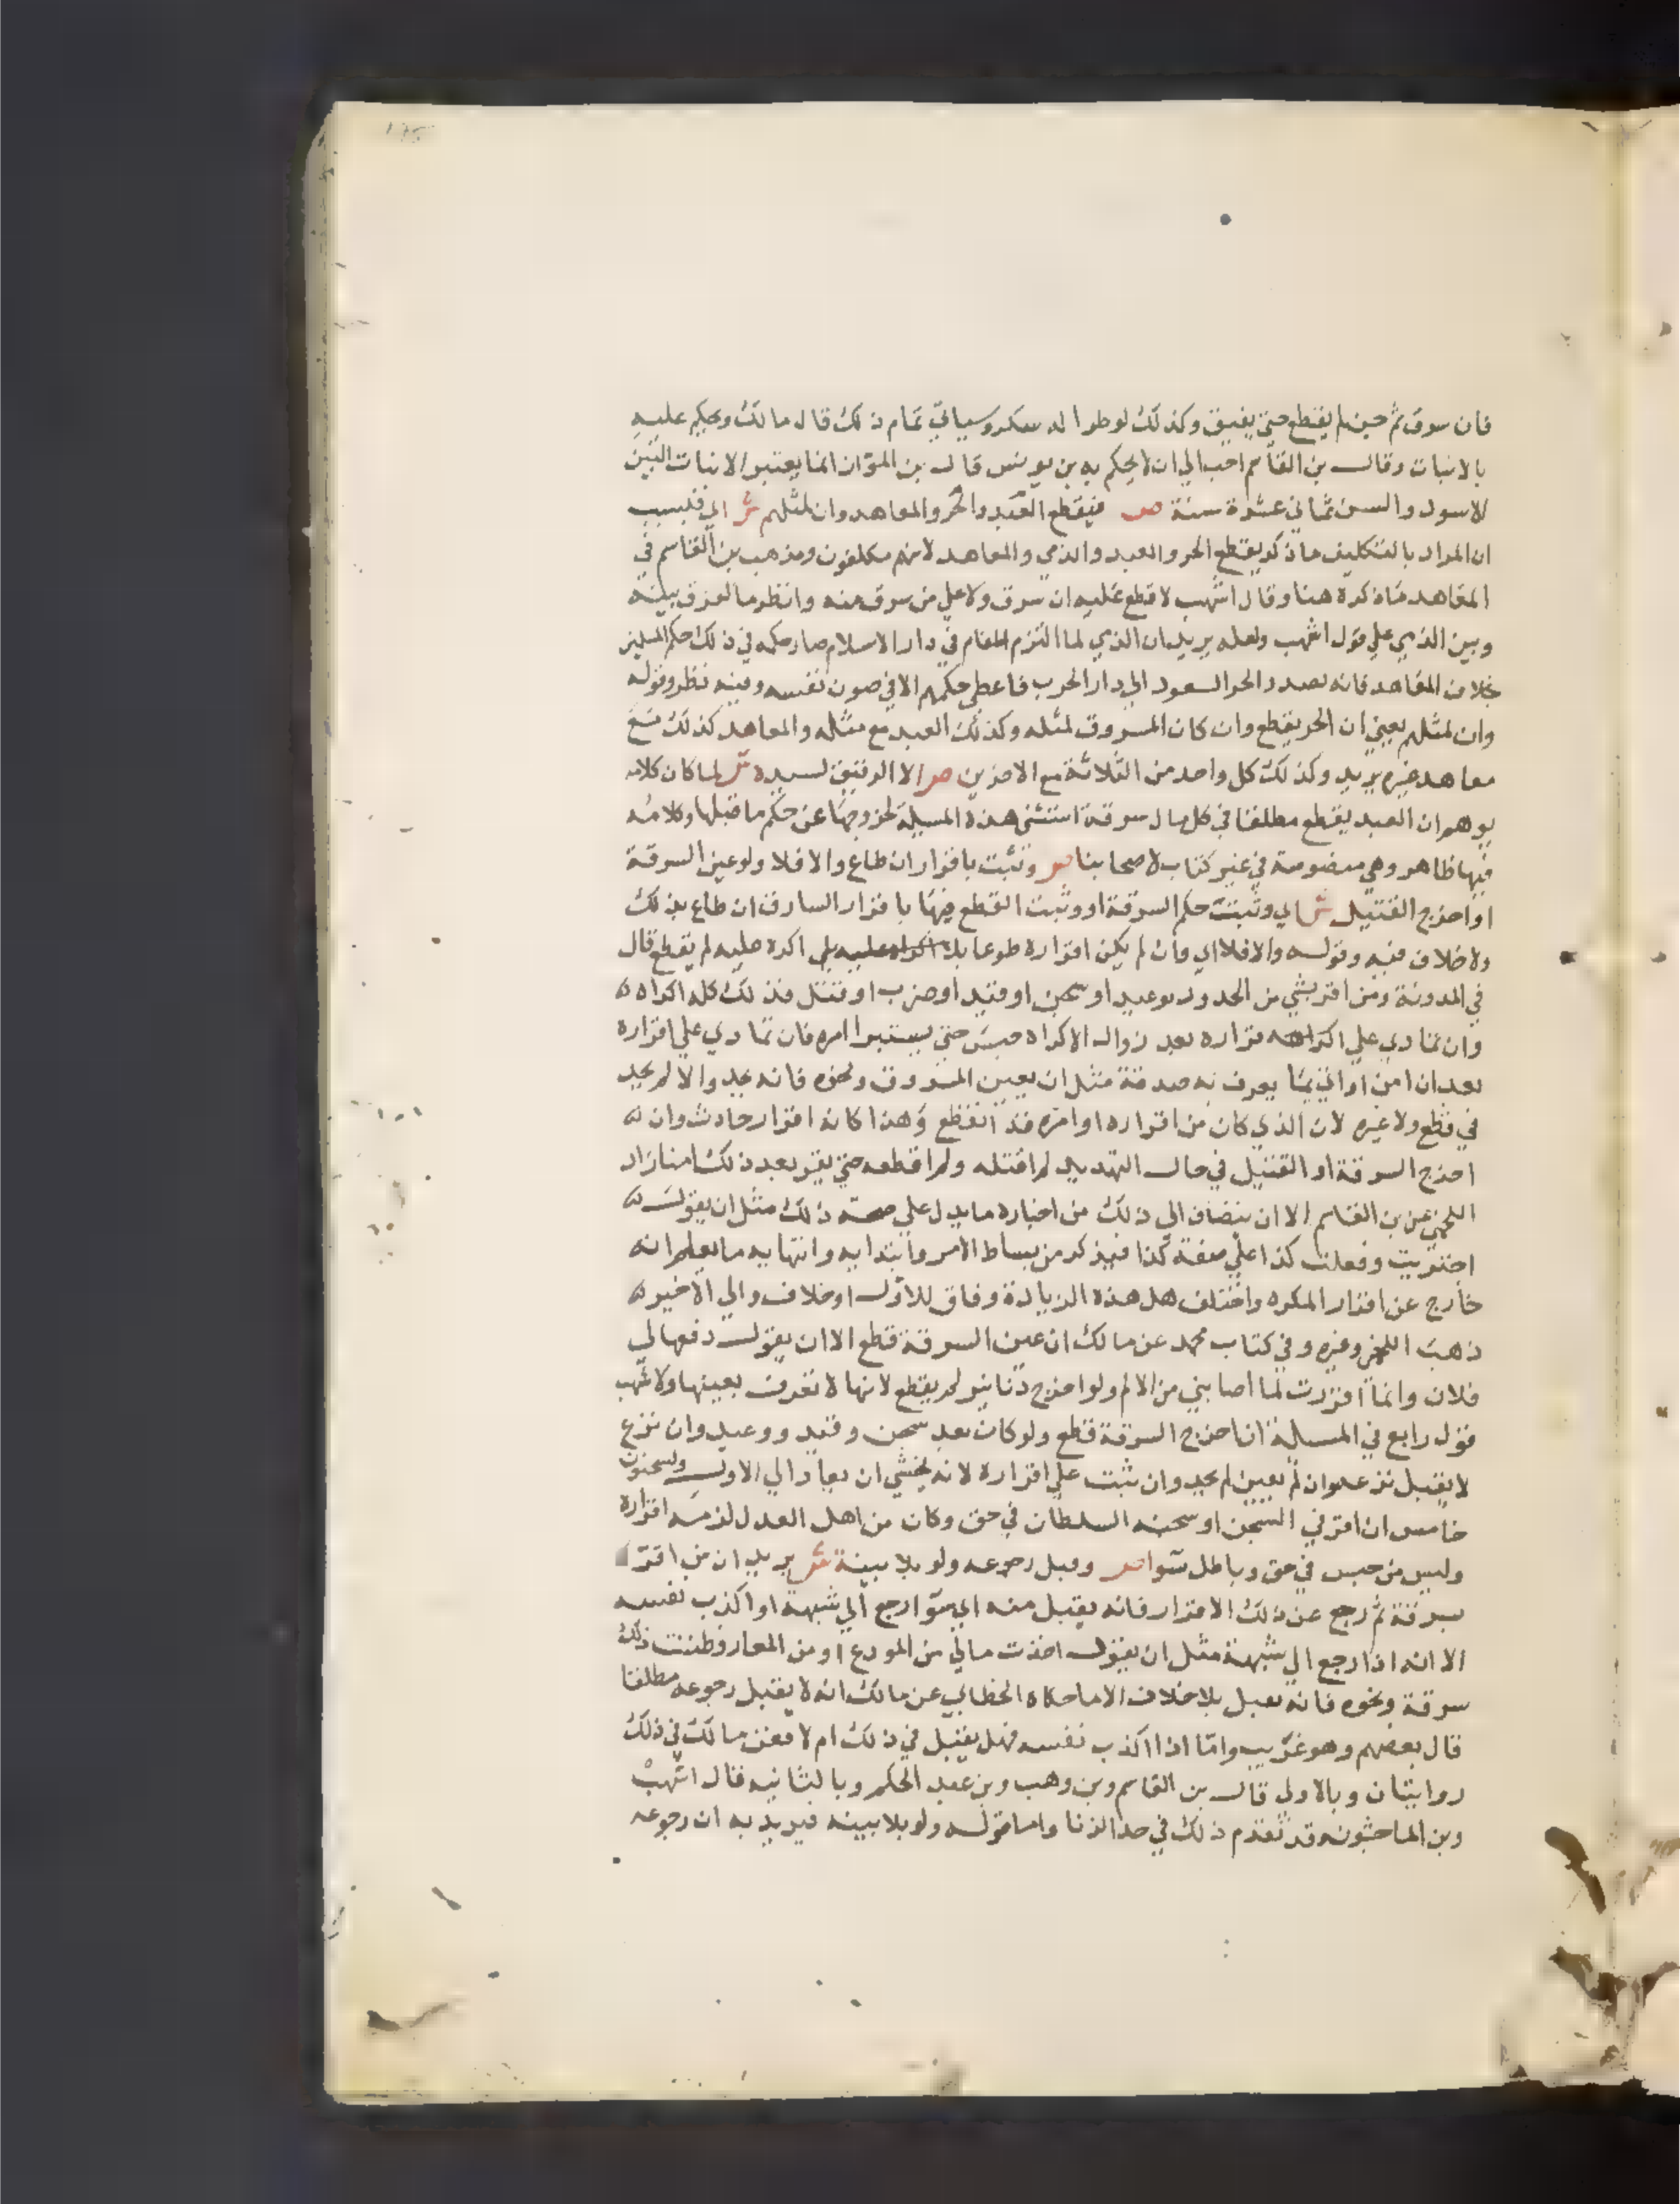 فان سرق ثم جن لم يقطع حتى يفيق وكذلك لو طرا له سكر وسياتي تمام ذلك قال مالك ويحكم عليه
بالانبات وقال بن القاسم احب الي ان لا يحكم به بن يونس قال بن المواز انما يعتبر الانبات البين
الاسود والسن ثماني عشرة سنة ص فيقطع العبد والحر والمعاهد وان لمثلهم ش اي فبسبب
ان المراد بالتكليف ما ذكر يقطع الحر والعبد والذمي والمعاهد لانهم مكلفون ومذهب بن القاسم في
المعاهد ما ذكره هنا وقال اشهب لا قطع عليه ان سرق ولا علي من سرق منه وانظر ما الفرق بينه
وبين الذمي علي قول اشهب ولعله يريد ان الذمي لما التزم المقام في دار الاسلام صار حكمه في ذلك حكم المسلمين
بخلاف المعاهد فانه بصدد العود الي دار الحرب فاعطي حكمهم الا في صون نفسه وفيه نظر وقوله
وان لمثلهم يعني ان الحر يقطع وان كان المسروق لمثله وكذلك العبد مع مثله والمعاهد كذلك مع
معاهد غيره يريد وكذلك كل واحد من الثلاثة مع الاخرين ص الا الرقيق لسيده ش لما كان كلامه
يوهم ان العبد يقطع مطلقا في كل مال سرقة استثني هذه المسيلة لخروجها عن حكم ما قبلها وكلامه
فيها ظاهر وهي منصوصة في غير كتاب لاصحابنا ص وثبت باقرار ان طاع والا فلا ولو عين السرقة
او اخرج القتيل ش اي وثبتت حكم السرقة او وثبت القطع فيها باقرار السارق ان طاع بذلك
ولا خلاف فيه وقوله والا فلا اي وان لم يكن اقراره طوعا بل اكره عليه لم يقطع قال
في المدونة ومن اقر بشي من الحدود بوعيد او سجن او قيد او ضرب او قتل فذلك كله اكراه
وان تمادي علي اقراره بعد زوال الاكراه حبس حتى يستبرا امره فان تمادي علي اقراره
بعد ان امن او اتي بما يعرف به صدقه مثل ان يعين المسروق ونحوه فانه يحد والا لم يحد
في قطع ولا غيره لان الذي كان من اقراره او امره قد انقطع وهذا كانه اقرار حادث وان
اخرج السرقة او القتيل في حال التهديد لم اقتله ولم اقطعه حتى يقر بعد ذلك امنا زاد
اللخمي عن بن القاسم الا ان ينضاف الي ذلك من اخباره ما يدل علي صحة ذلك مثل ان يقول
اجتريت وفعلت كذا علي صفة كذا فيذكر من بساط الامر وابتدايه وانتهايه ما يعلم انه
خارج عن اقرار المكره واختلف هل هذه الزيادة وفاق للاول او خلاف والي الاخير
ذهب اللخمي وغيره وفي كتاب محمد عن مالك ان عين السرقة قطع الا ان يقول دفعها لي
فلان وانما اقررت لما اصابني من الالم ولو اخرج دنانير لم يقطع لانها لا تعرف بعينها ولاشهب
قول رابع في المسيلة اذا اخرج السرقة قطع ولو كان بعد سجن وقيد ووعيد وان نزع
لا يقبل نزعه وان لم يعين لم يحد وان ثبت علي اقراره لانه يخشي ان يعاد الي الاول ولسحنون
خامس ان اقر في السجن او سجنه السلطان في حق وكان من اهل العدل لزمه اقراره
وليس من حبس في حق وباطل سوا ص وقبل رجوعه ولو بلا بينة ش يريد ان من اقر
بسرقة ثم رجع عن ذلك الاقرار فانه يقبل منه اي سوا رجع الي شبهة او اكذب نفسه
الا انه اذا رجع الي شبهة مثل ان يقول اخذت مالي من المودع او من المعار وظننت ذلك
سرقة ونحوه فانه يقبل بلا خلاف الا ما حكاه الخطابي عن مالك انه لا يقبل رجوعه مطلقا
قال بعضهم وهو غريب واما اذا اكذب نفسه فهل يقبل في ذلك ام لا فعن مالك في ذلك
روايتان وبالاول قال بن القاسم وبن وهب وبن عبد الحكم وبالثانيه قال اشهب
وبن الماجشون وقد تقدم ذلك في حد الزنا واما قوله ولو بلا بينه فيريد به ان رجوعه